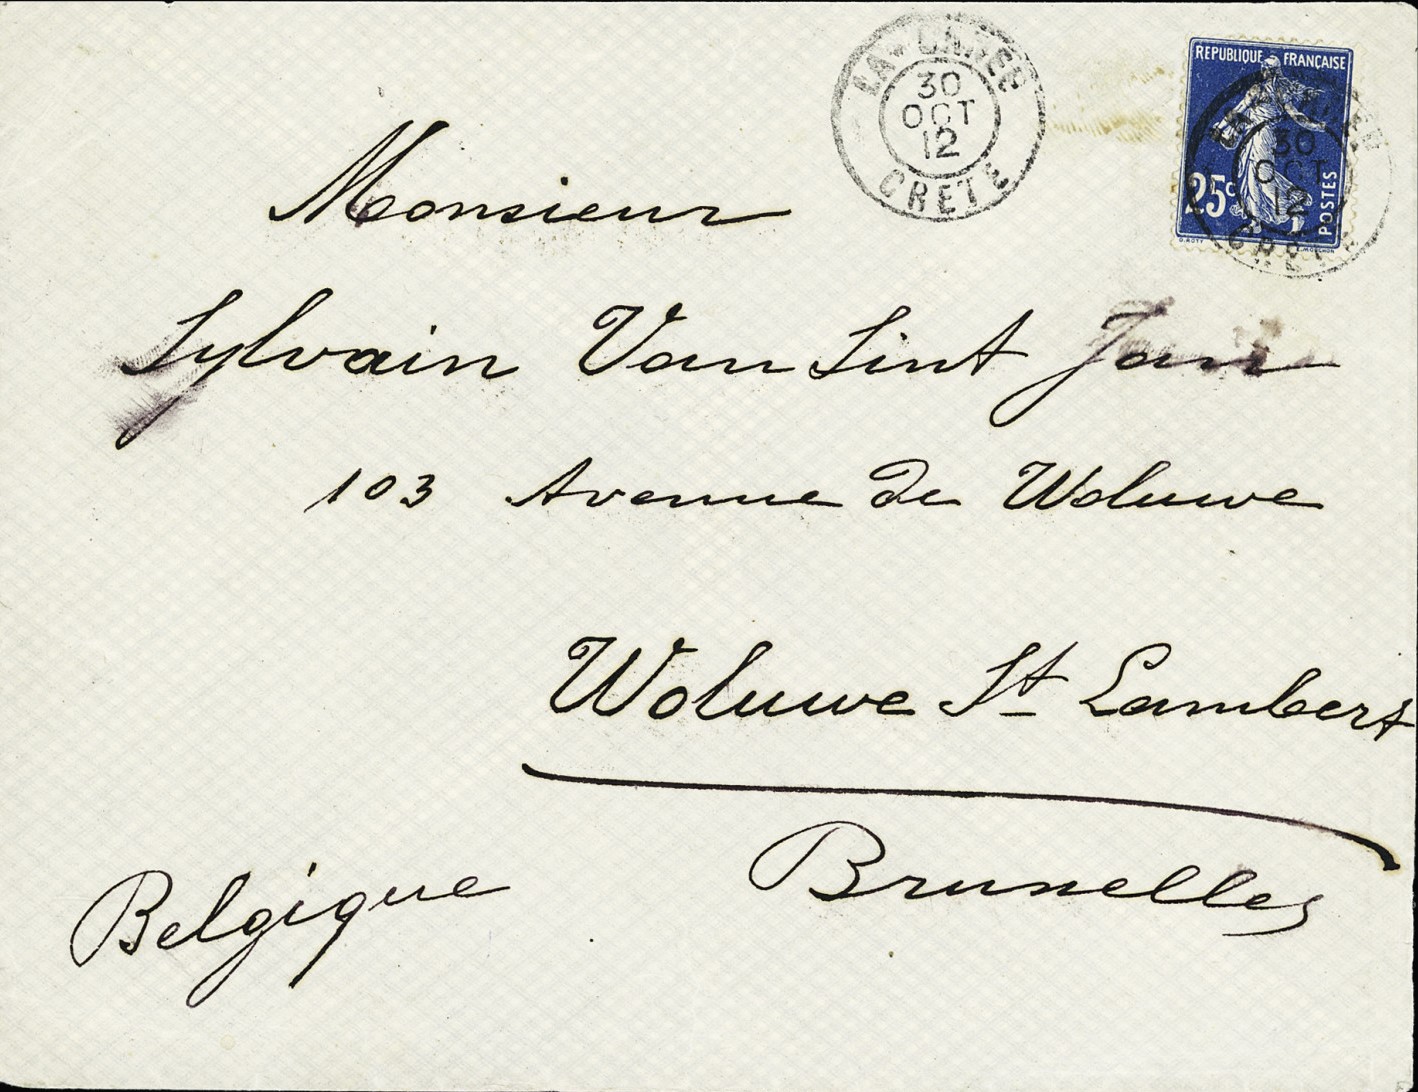 LA CANEE
30
OCT
12
CRETE
REPUBLIQUE FRANÇAISE
25c
POSTES
30
OCT
12
CRETE
Monsieur
Sylvain Van Sint Jan
103 Avenue de Woluwe
Woluwe St Lambert
Bruxelles
Belgique